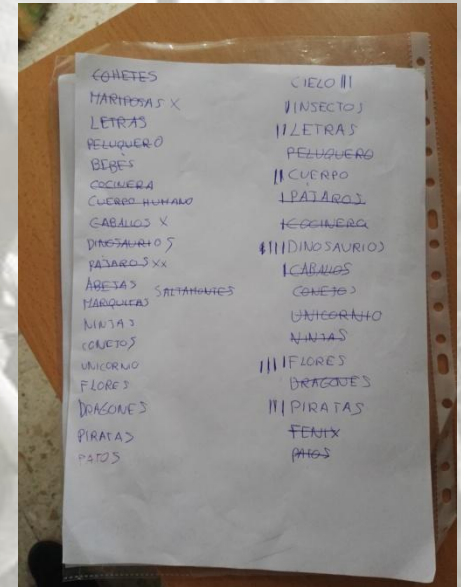 COHETES
MARIPOSAS X
LETRAS
PELUQUERO
BEBÉS
COCINERA
CUERPO HUMANO
CABALLOS X
DINOSAURIOS
PAJAROS XX
ABEJAS SALTAMONTES
MARIQUITAS
NINJAS
CONEJOS
UNICORNIO
FLORES
DRAGONES
PIRATAS
PATOS
CIELO III
II INSECTOS
II LETRAS
PELUQUERO
II CUERPO
I PÁJAROS
I COCINERA
IIII DINOSAURIOS
I CABALLOS
CONEJOS
UNICORNIO
NINJAS
IIII FLORES
DRAGONES
III PIRATAS
FENIX
PATOS